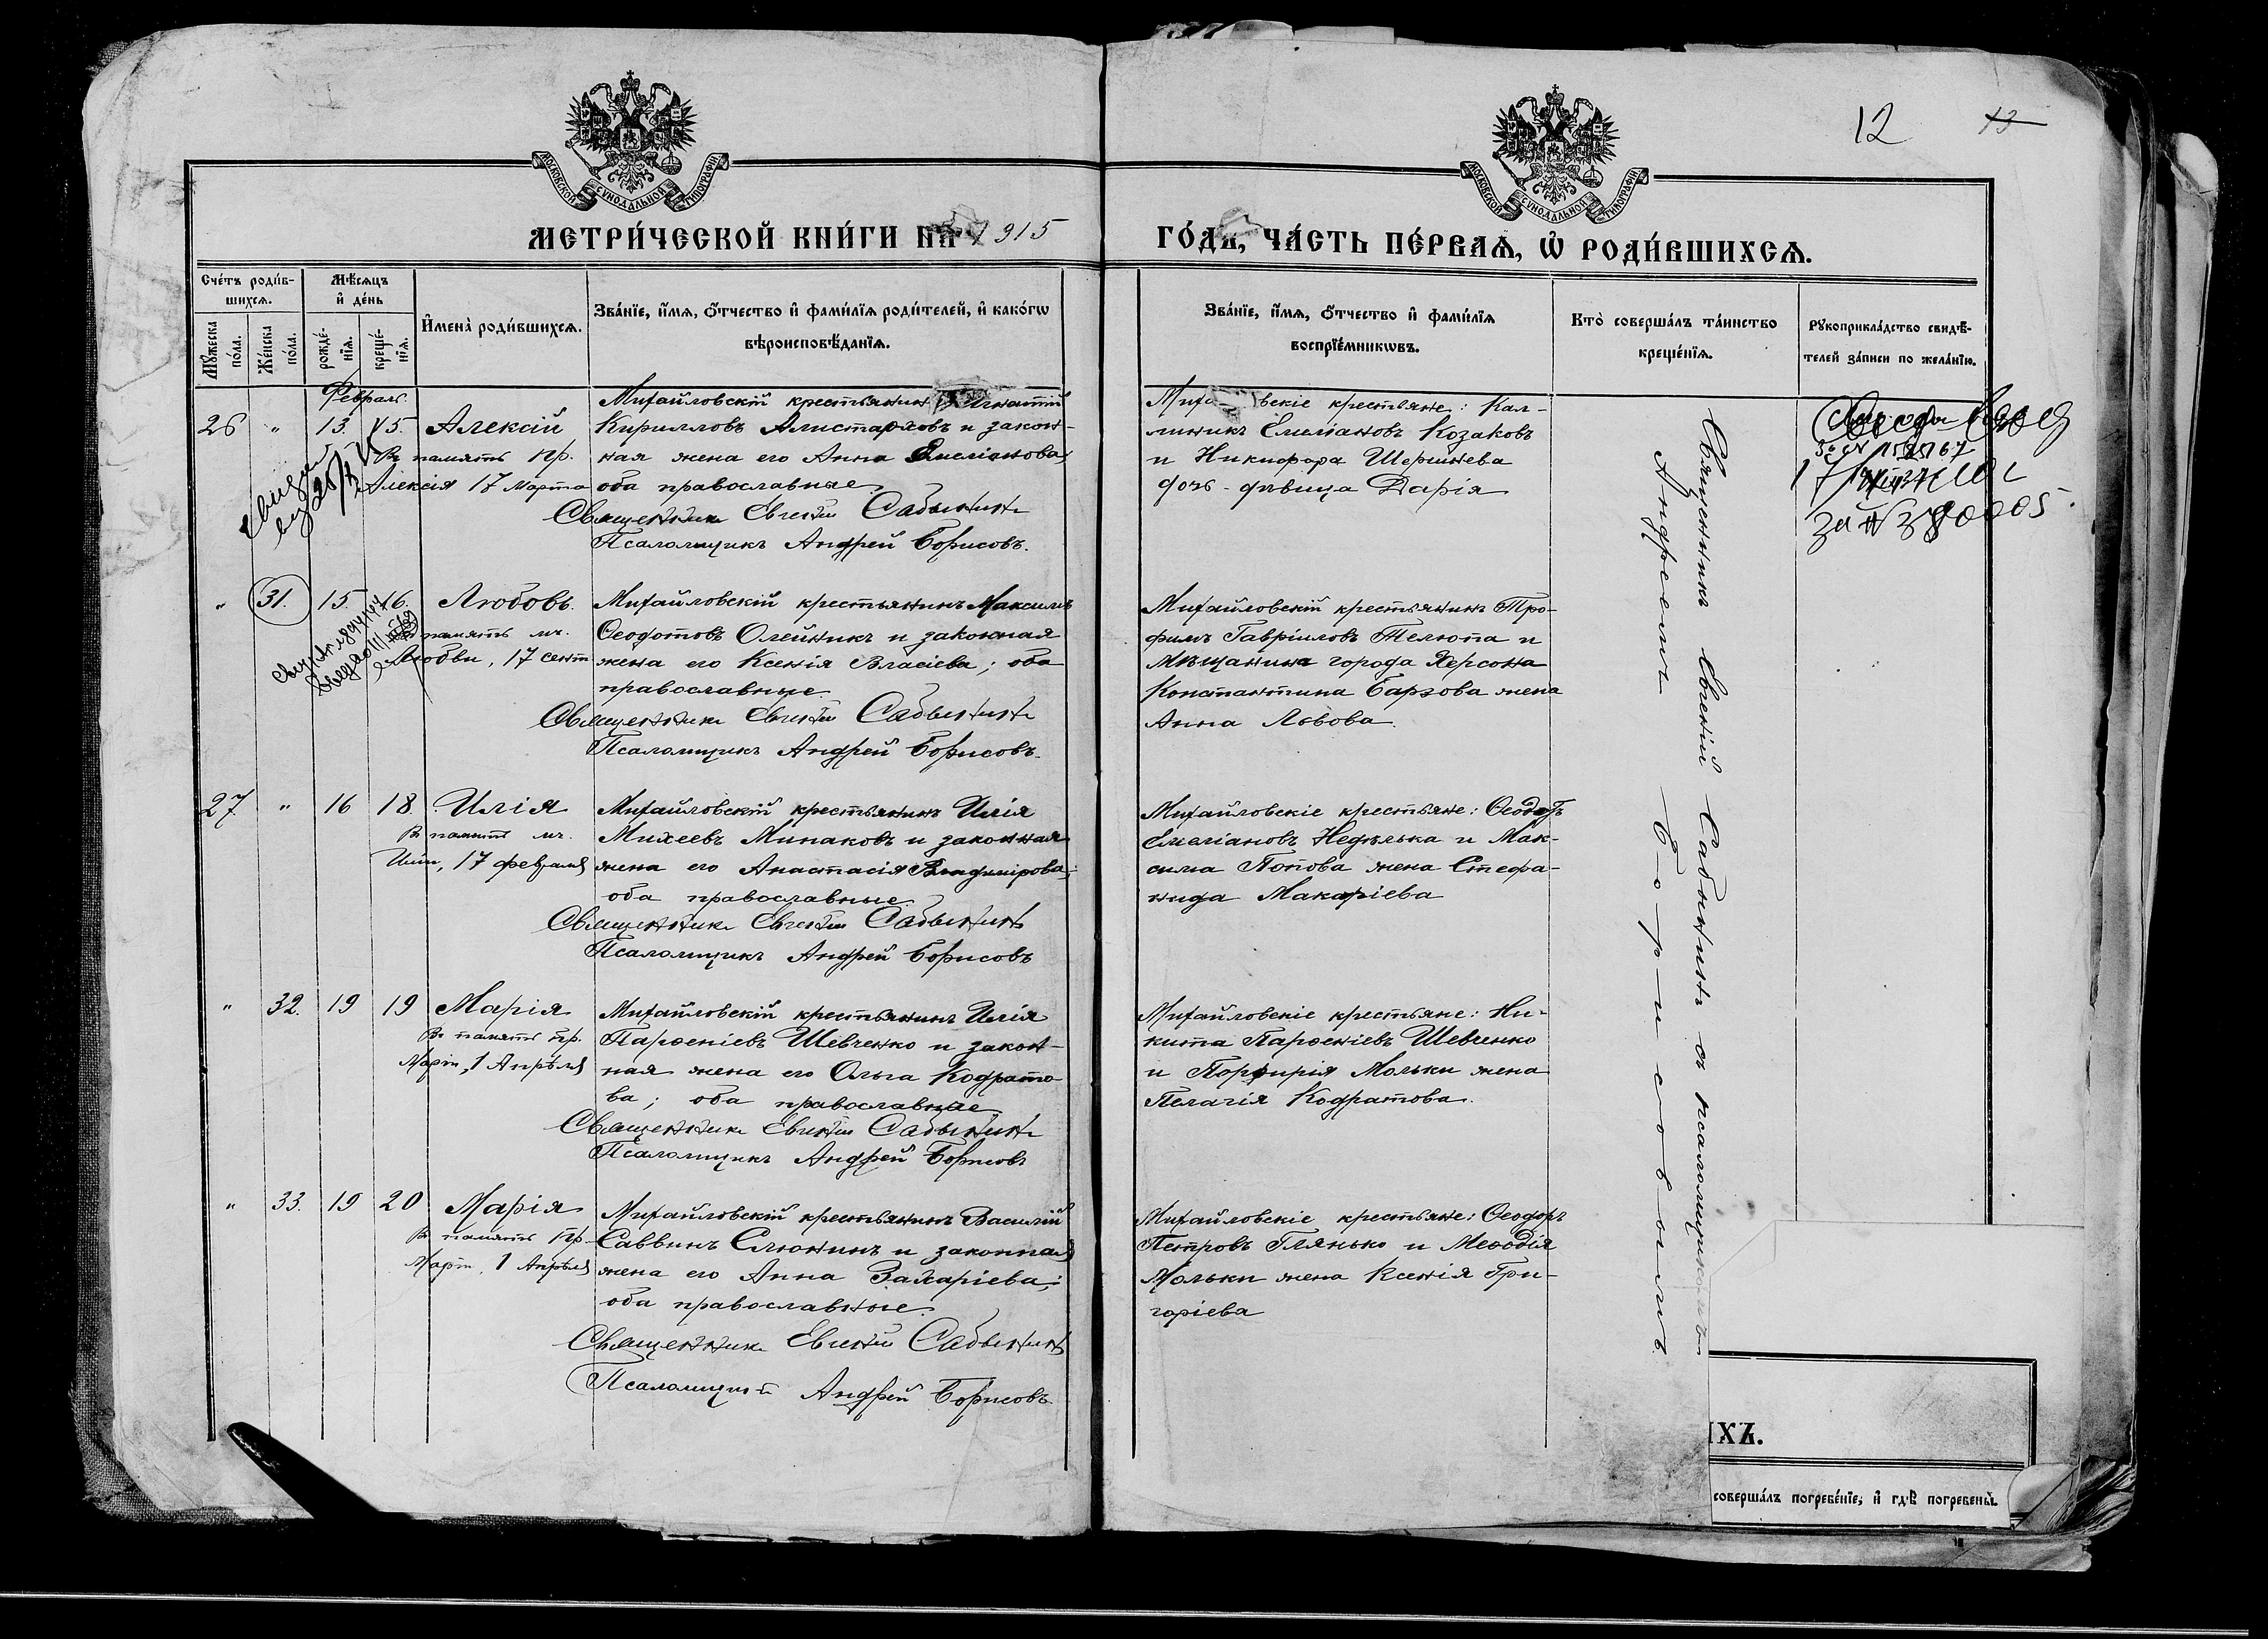 12
13
МОСКОВСКОЙ СУНОДАЛЬНОЙ ТИПОГРАФІИ
МОСКОВСКОЙ СУНОДАЛЬНОЙ ТИПОГРАФІИ
МЕТРИ́ЧЕСКОЙ КНИ́ГИ НА 1915
ГО́ДЪ, ЧА́СТЬ ПЕ́РВАѦ, Ѽ РОДИ́ВШИХСѦ.
Сче́тъ роди́в-
шихсѧ.
Мꙋ́жеска
по́ла.
Же́нска
по́ла.
Мѣ́сѧцъ
и҆ де́нь
рожде́-
нїѧ.
креще́-
нїѧ.
И҆мена̀ роди́вшихсѧ.
Зва́нїе, и҆́мѧ, ѻ҆́тчество и҆ фами́лїѧ роди́телей, и҆ како́гѡ
вѣроисповѣ́данїѧ.
Зва́нїе, и҆́мѧ, ѻ҆́тчество и҆ фами́лїѧ
воспрїе́мникѡвъ.
Кто̀ соверша́лъ та́инство
креще́нїѧ.
Рꙋкоприкла́дство свидѣ́-
телей за́писи по жела́нїю.
Февраль.
26 " 13. 15. Алексій
Въ память пр.
Алексія 17 Марта
Михайловскій крестьянинъ Игнатій
Кирилловъ Алистарховъ и закон-
ная жена его Анна Емеліанова;
оба православные.
Священникъ Евгеній Сабынинъ
Псаломщикъ Андрей Борисовъ.
Михайловскіе крестьяне: Кал-
линикъ Емеліановъ Козаковъ
и Никифора Шершнева
дочь - дѣвица Дарія
" 31. 15. 16. Любовь.
въ память мц.
Любви, 17 сент
Михайловскій крестьянинъ Максимъ
Ѳеодотовъ Олейникъ и законная
жена его Ксенія Власіева; оба
православные.
Священникъ Евгеній Сабынинъ
Псаломщикъ Андрей Борисовъ.
Михайловскій крестьянинъ Тро-
фимъ Гавріиловъ Телюпа и
мѣщанина города Херсона
Константина Баржова жена
Анна Львова.
27. " 16 18. Илія
Въ память мч.
Иліи, 17 февраля
Михайловскій крестьянинъ Илія
Михеевъ Минаковъ и законная
жена его Анастасія Владимірова;
оба православные.
Священникъ Евгеній Сабынинъ
Псаломщикъ Андрей Борисовъ
Михайловскіе крестьяне: Ѳеодотъ
Емеліановъ Недѣлька и Мак-
сима Попова жена Стефа-
нида Макаріева
" 32. 19 19 Марія
Въ память пр.
Маріи, 1 Апрѣля
Михайловскій крестьянинъ Илія
Парѳеніевъ Шевченко и закон-
ная жена его Ольга Кодрато-
ва; оба православные.
Священникъ Евгеній Сабынинъ
Псаломщикъ Андрей Борисовъ
Михайловскіе крестьяне: Ни-
кита Парѳеніевъ Шевченко
и Порфирія Мольки жена
Пелагія Кодратова.
" 33. 19 20 Марія
Въ память пр.
Маріи, 1 Апрѣля
Михайловскій крестьянинъ Василій
Саввинъ Слюнинъ и законная
жена его Анна Захаріева;
оба православные.
Священникъ Евгеній Сабынинъ
Псаломщикъ Андрей Борисовъ.
Михайловскіе крестьяне: Ѳеодоръ
Петровъ Глянько и Меѳодія
Мольки жена Ксенія Гри-
горіева
Священникъ Евгеній Сабынинъ съ псаломщикомъ
Андреемъ Борисовымъ.
ИХЪ.
соверша́лъ погребе́нїе, и҆ гдѣ̀ погребены̀.